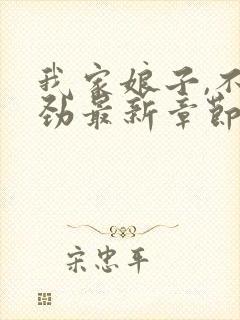 我家娘子,不
劲最新章節
宋忠平